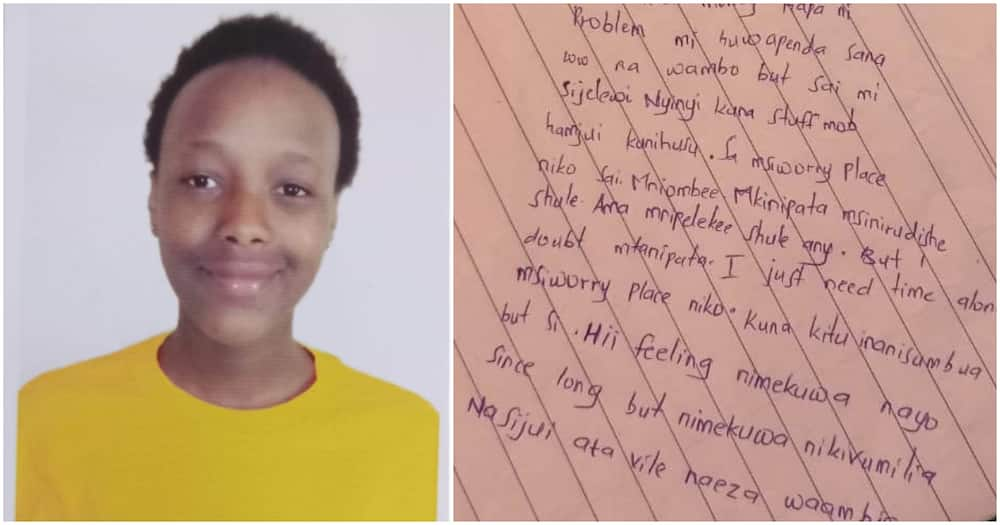 Problem mi huwapenda sana
ww na wambo but sai mi
sijelewi Nyinyi kuna stuff mob
hamjui kunihusu. Sa msiworry place
niko sai. Mniombee Mkinipata msinirudishe
shule. Ama mnipelekee shule any. But I
doubt mtanipata. I just need time alon
msiworry place niko. Kuna kitu inanisumbua
but si. Hii feeling nimekuwa nayo
since long but nimekuwa nikivumilia
Na sijui ata vile naeza waambi